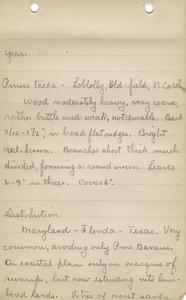 Pinus taeda - Loblolly, Old-field, N. Carolina
Wood moderately heavy, very coarse,
rather brittle and weak, not durable. Bark
3/4-1 1/2", in broad flat ridges. Bright
red-brown. Branches short thick much
divided, forming a round crown. Leaves
6-9" in threes. Cones 6".
Distribution
Maryland - Florida - Texas. Very
common, avoiding only Pine Barrens.
On coastal plain only on margins of
swamps, but now extending into
lands. A tree of moist sandy